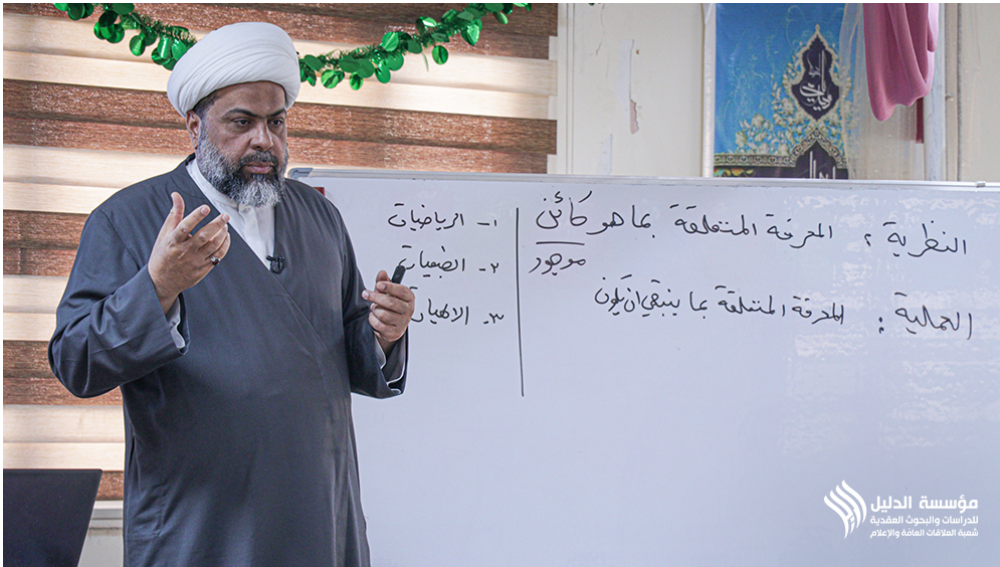 النظرية : المعرفة المتعلقة بما هو كائن
موجود
العملية : المعرفة المتعلقة بما ينبغي ان يكون
١- الرياضيات
٢- الطبيعيات
٣- الالهيات
مؤسسة الدليل
للدراسات والبحوث العقدية
شعبة العلاقات العامة والإعلام